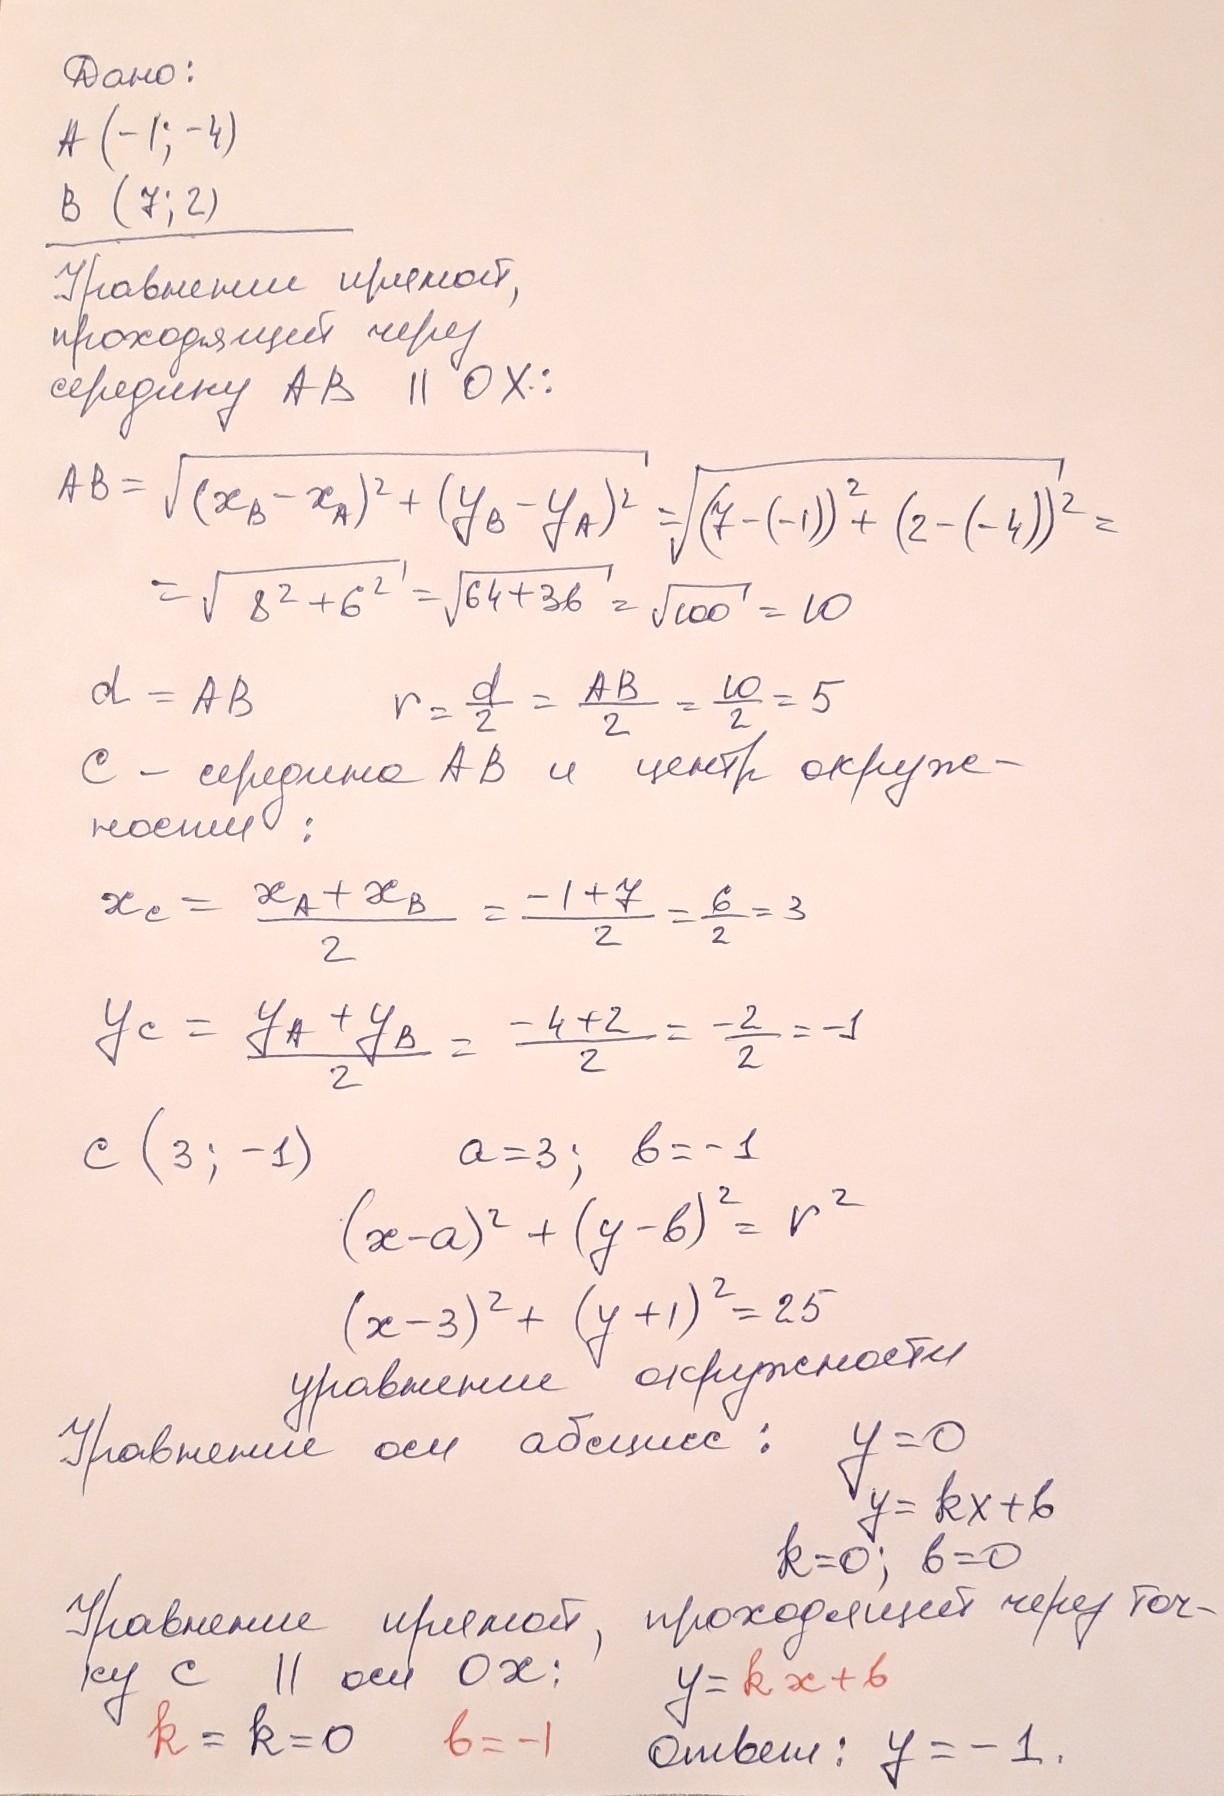 Дано:
A (-1; -4)
B (7; 2)
Уравнение прямой,
проходящей через
середину AB || OX:
AB = √((x_B - x_A)² + (y_B - y_A)²) = √((7-(-1))² + (2-(-4))²) =
= √(8² + 6²) = √(64+36) = √100 = 10
d = AB r = d/2 = AB/2 = 10/2 = 5
C - середина AB и центр окруж-
ности:
x_c = (x_A + x_B)/2 = (-1+7)/2 = 6/2 = 3
y_c = (y_A + y_B)/2 = (-4+2)/2 = -2/2 = -1
C (3; -1) a=3; b=-1
(x-a)² + (y-b)² = r²
(x-3)² + (y+1)² = 25
уравнение окружности
Уравнение оси абсцисс: y=0
y = kx+b
k=0; b=0
Уравнение прямой, проходящей через точ-
ку C || оси OX: y = kx+b
k = k=0 b=-1 Ответ: y=-1.